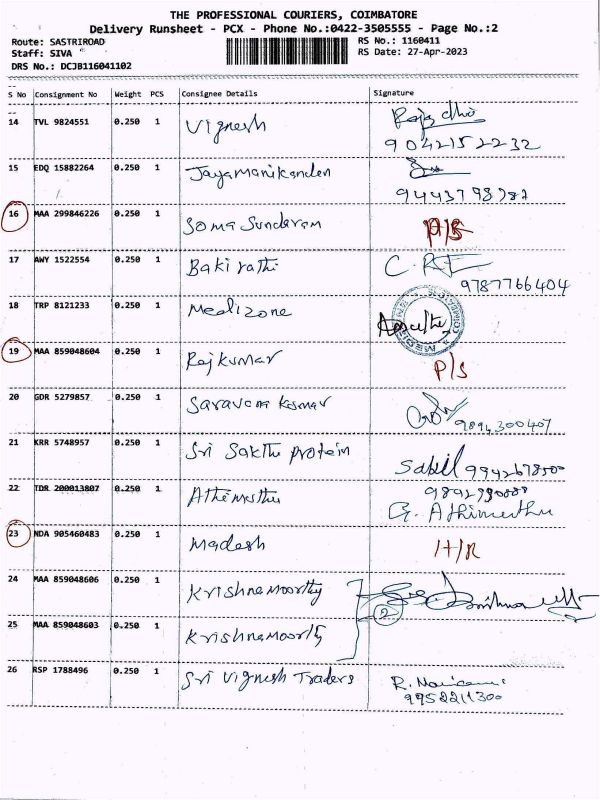 THE PROFESSIONAL COURIERS, COIMBATORE
Delivery Runsheet - PCX - Phone No.:0422-3505555 - Page No.:2
Route: SASTRIROAD RS No.: 1160411
Staff: SIVA RS Date: 27-Apr-2023
DRS No.: DCJB116041102
S No Consignment No Weight PCS Consignee Details Signature
14 TVL 9824551 0.250 1 Vignesh
9042152232
15 EDQ 15882264 0.250 1 Jayamanikanden
9443798982
16 MAA 299846226 0.250 1 Soma Sundaram
17 AWY 1522554 0.250 1 Bakirathi
9787766404
18 TRP 8121233 0.250 1 Medizone
19 MAA 859048604 0.250 1 Rajkumar P/S
20 GDR 5279857 0.250 1 Saravana Kumar
9894300407
21 KRR 5748957 0.250 1 Sri Sakthi protein
22 TDR 200013807 0.250 1 Athimuthu
G. Athimuthu
23 NDA 905460483 0.250 1 Madesh
24 MAA 859048606 0.250 1 Krishnamoorthy
2
25 MAA 859048603 0.250 1 Krishnamoorthy
26 RSP 1788496 0.250 1 Sri Vignesh Traders
9952211300